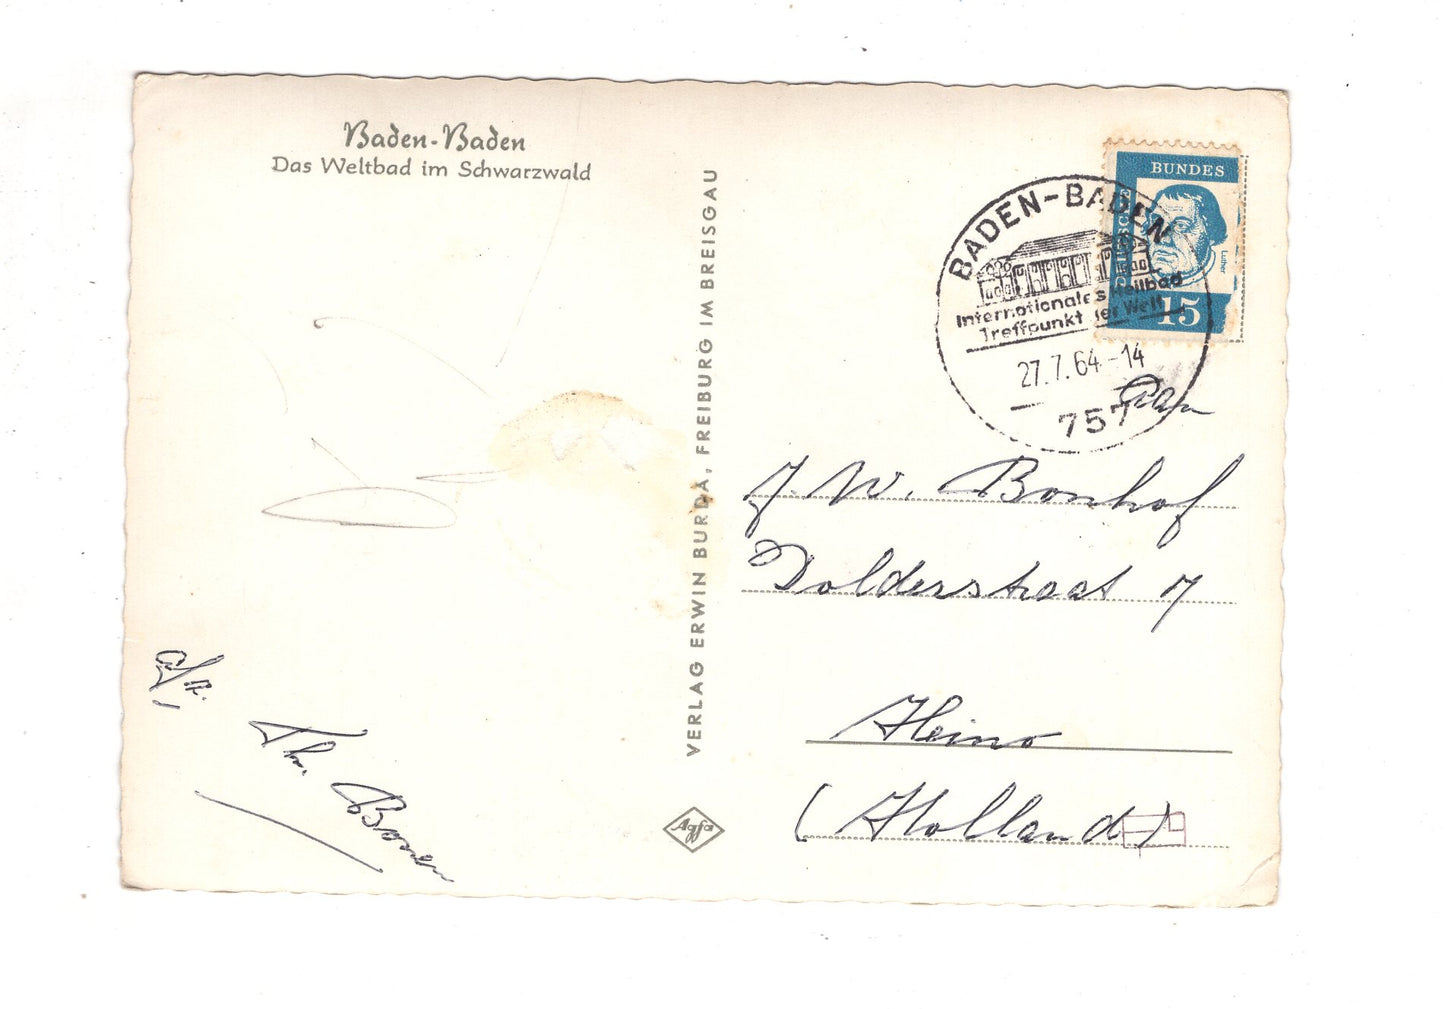 Baden-Baden
Das Weltbad im Schwarzwald
VERLAG ERWIN BURDA, FREIBURG IM BREISGAU
BUNDES
DEUTSCHE
Luther
15
BADEN-BADEN
Internationales Heilbad
Treffpunkt der Welt
27.7.64-14
757
J. W. Bonhof
Dolderstraat 7
Heino
(Holland)
Afz.
Th. Bonen
Agfa